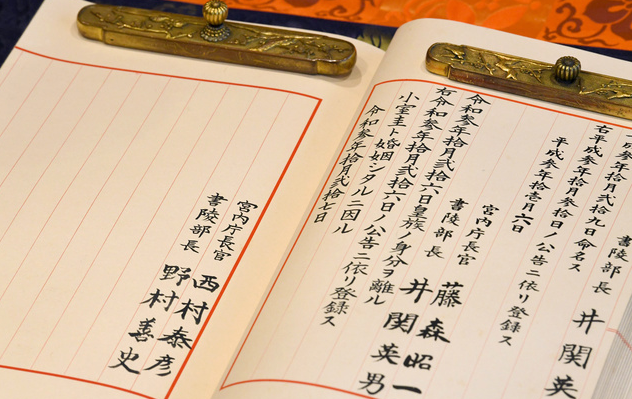 拾九日命名ス
右平成参年拾月参拾日ノ公告ニ依リ登録ス
平成参年拾壱月六日
書陵部長 井関英
宮内庁長官 藤森昭一
書陵部長 井関英男
令和参年拾月弐拾六日皇族ノ身分ヲ離ル
小室圭ト婚姻シタルニ因ル
右令和参年拾月弐拾六日ノ公告ニ依リ登録ス
令和参年拾月弐拾七日
宮内庁長官 西村泰彦
書陵部長 野村善史